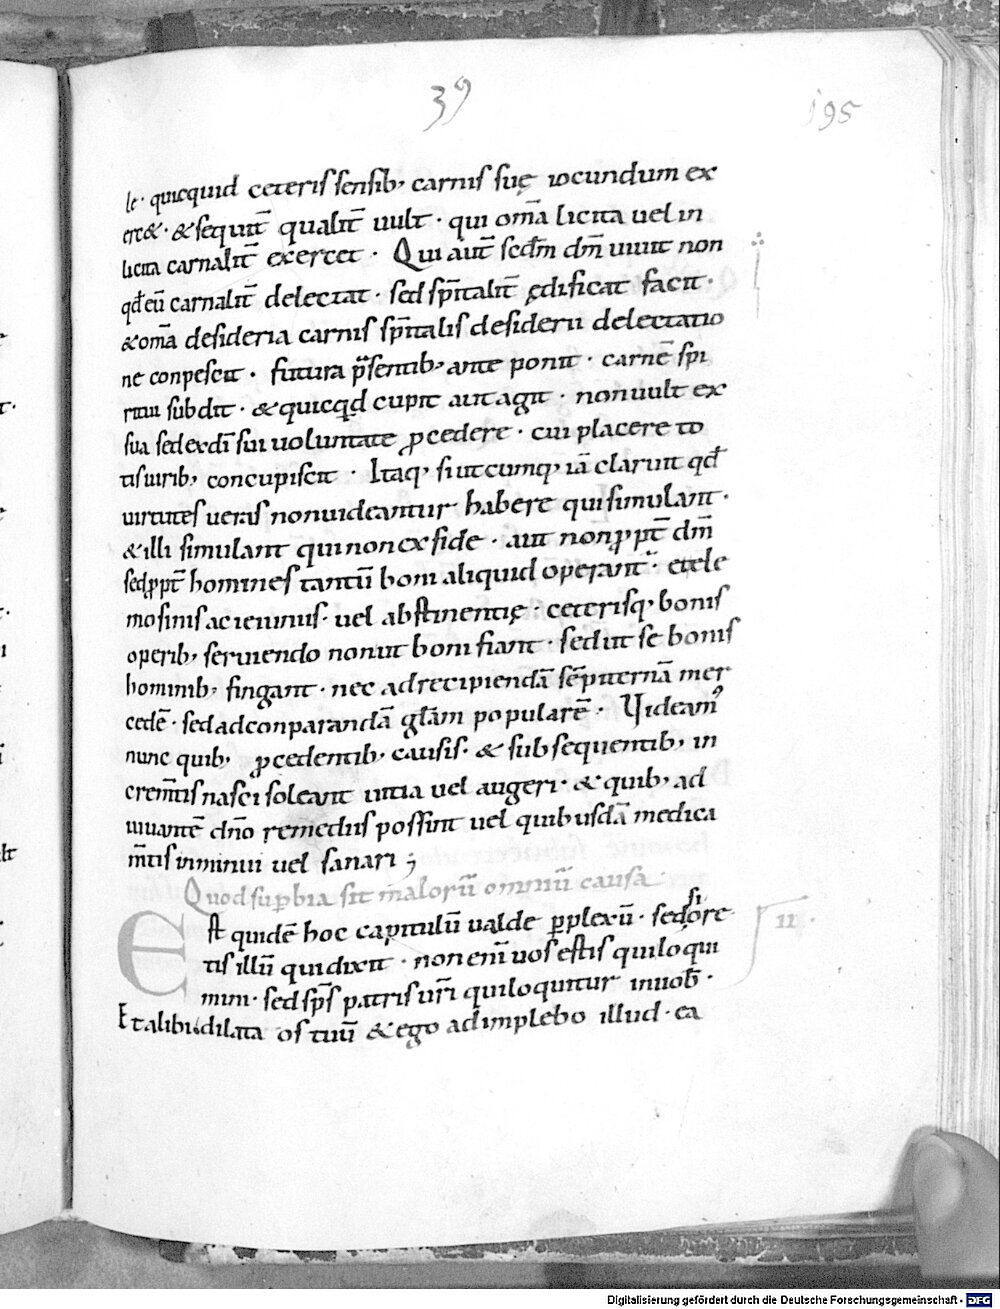 39
195
le· quicquid ceteris sensib; carnis suę iocundum ex
erc&· & sequit̄ qualit̄ uult· qui om̄a licita uel in
licita carnalit̄ exercet· Qui aut̄ scd̄m dm̄ uiuit non
qđ eū carnalit̄ delectat· sed sp̄italit̄ ędificat facit·
& om̄a desideria carnis sp̄italis desiderii delectatio
ne conpescit· futura p̄sentib; ante ponit· carnē spi
ritui subdit· & quicq̣d cupit aut agit· non uult ex
sua sed ex dī sui uoluntate ꝓcedere· cui placere to
tis uirib; concupiscit· Itaq; sicut cumq; iā clarunt qđ
uirtutes ueras non uideantur habere qui simulant·
& illi simulant qui non ex fide· aut non ꝓpt̄ dm̄
sed ꝓpt̄ homines tantū boni aliquid operant̄· et ele
mosinis ac ieiuniis· uel abstinentię· ceterisq; bonis
operib; seruiendo non ut boni fiant· sed ut se bonis
hominib; fingant· nec ad recipiendā sēpiternā mer
cedē· sed ad conparandā głam popularē· Videam᾿
nunc quib; ꝓcedentib; causis· & subsequentib; in
crem̄tis nasci soleant uitia uel augeri· & quib; ad
iuuantē dn̄o remediis possint uel quibusdā medica
m̄tis inminui uel sanari;
Quod suꝑbia sit malorū omniū causa·
Est quidē hoc capitulū ualde ꝑplexū· sed si ore
tis illū qui dixit· non enī uos estis qui loqui
mini· sed sp̄s patris ur̄i qui loquitur in uob̄·
Et alibi dilata os tuū & ego adimplebo illud· ea
II·
Digitalisierung gefördert durch die Deutsche Forschungsgemeinschaft - DFG